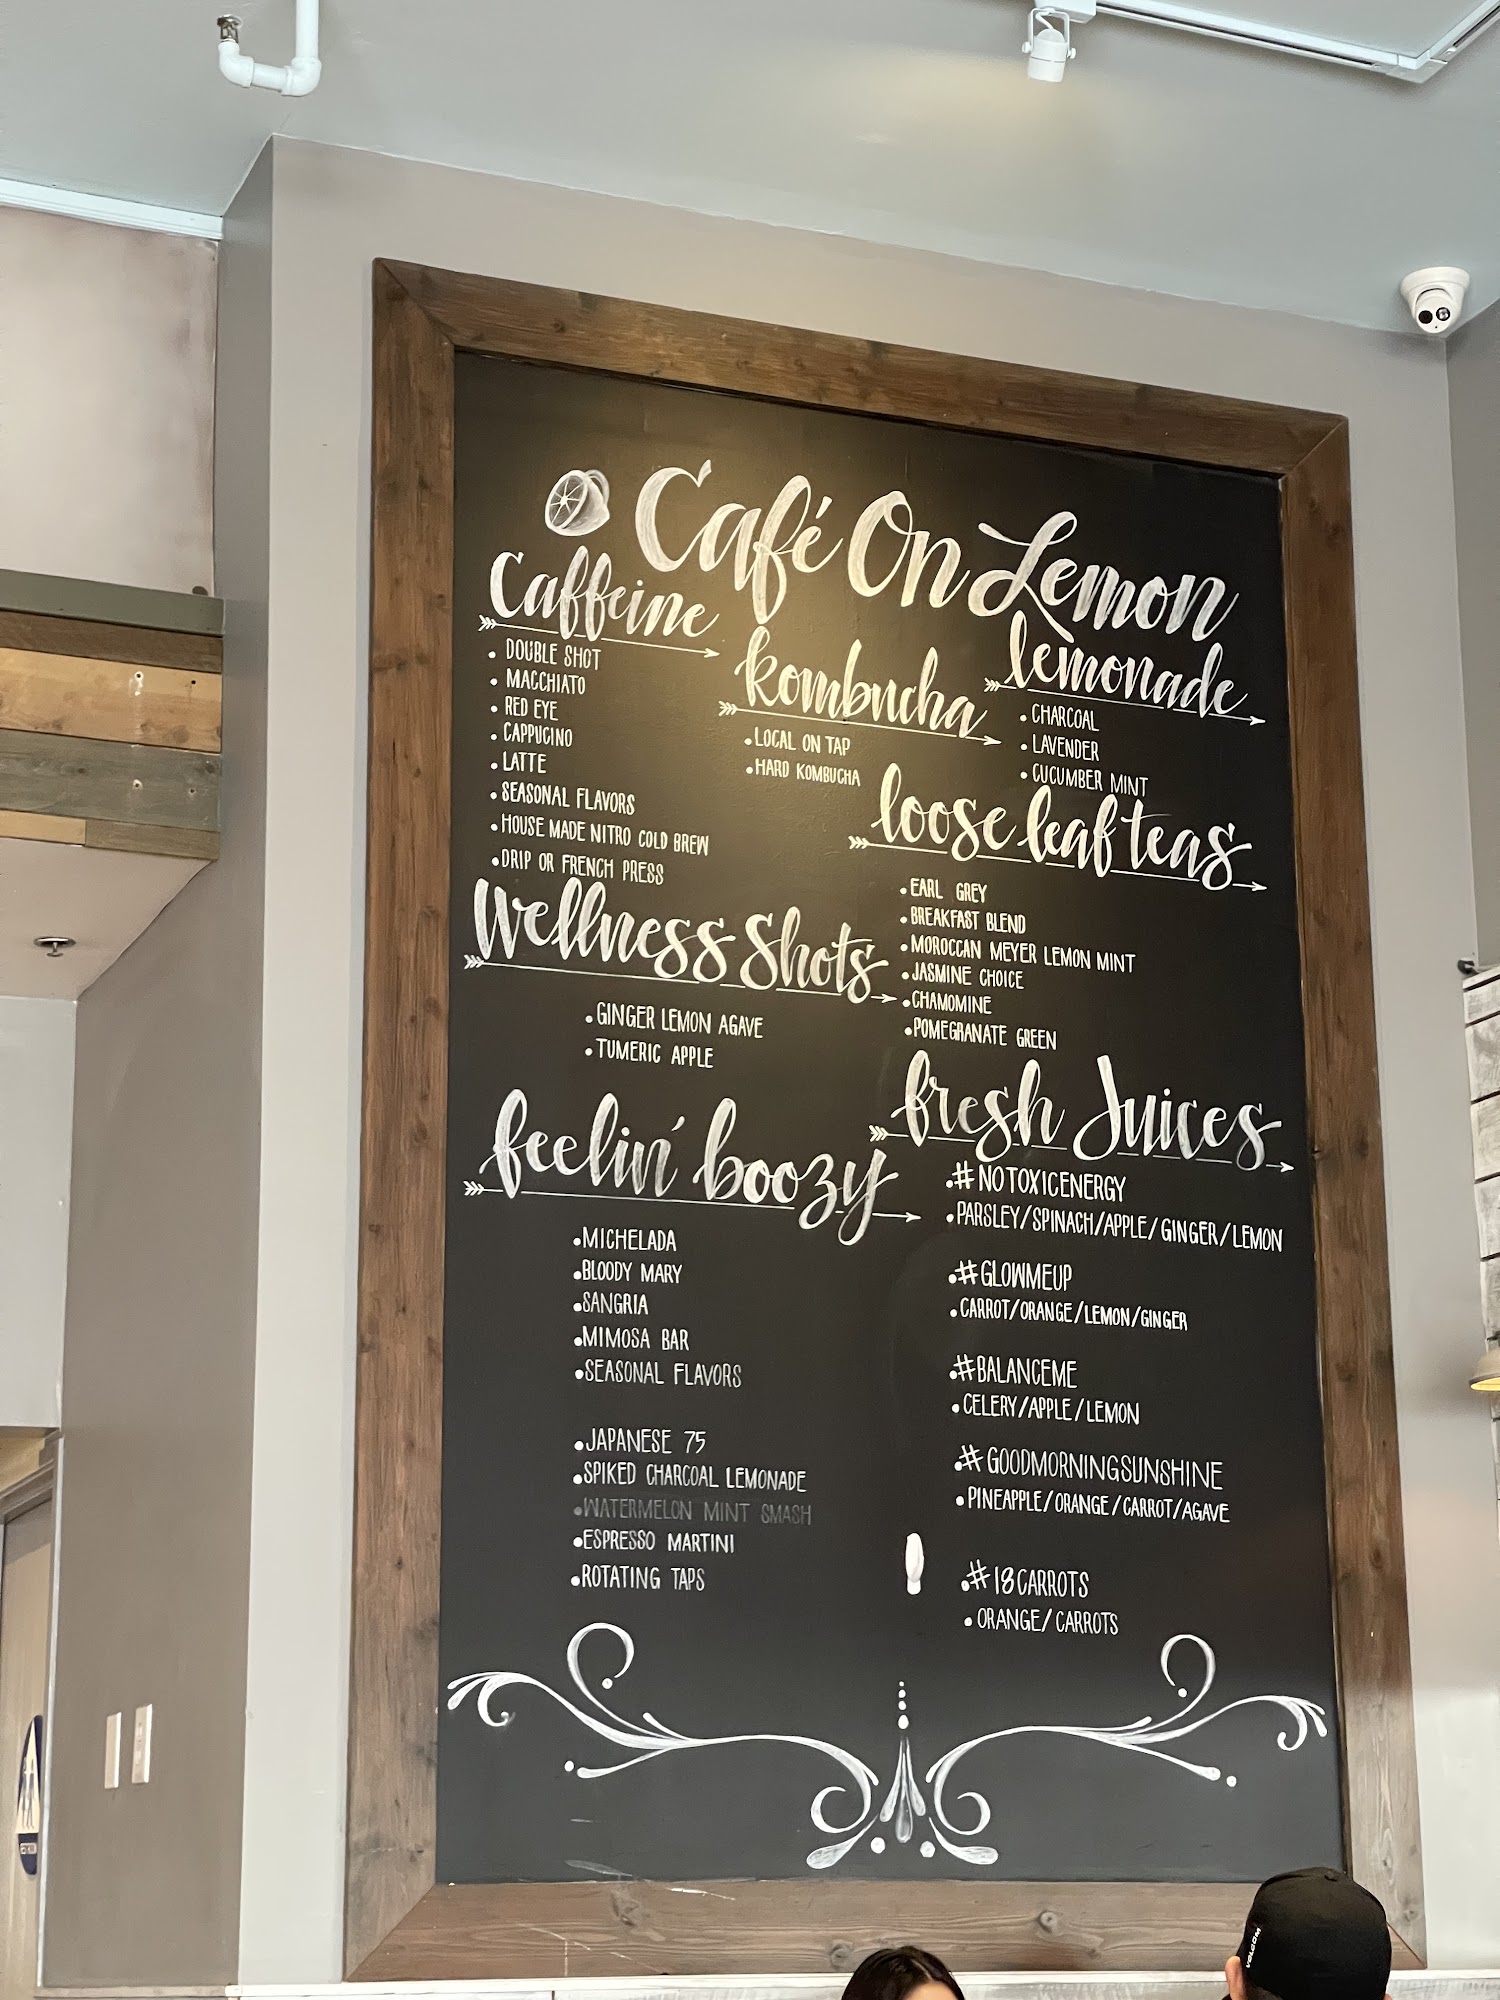 Café On Lemon
Caffeine
• DOUBLE SHOT
• MACCHIATO
• RED EYE
• CAPPUCINO
• LATTE
• SEASONAL FLAVORS
• HOUSE MADE NITRO COLD BREW
• DRIP OR FRENCH PRESS
kombucha
• LOCAL ON TAP
• HARD KOMBUCHA
lemonade
• CHARCOAL
• LAVENDER
• CUCUMBER MINT
loose leaf teas
• EARL GREY
• BREAKFAST BLEND
• MOROCCAN MEYER LEMON MINT
• JASMINE CHOICE
• CHAMOMINE
• POMEGRANATE GREEN
Wellness Shots
• GINGER LEMON AGAVE
• TUMERIC APPLE
feelin' boozy
• MICHELADA
• BLOODY MARY
• SANGRIA
• MIMOSA BAR
• SEASONAL FLAVORS
• JAPANESE 75
• SPIKED CHARCOAL LEMONADE
• WATERMELON MINT SMASH
• ESPRESSO MARTINI
• ROTATING TAPS
fresh Juices
• #NOTOXICENERGY
• PARSLEY/SPINACH/APPLE/GINGER/LEMON
• #GLOWMEUP
• CARROT/ORANGE/LEMON/GINGER
• #BALANCEME
• CELERY/APPLE/LEMON
• #GOODMORNINGSUNSHINE
• PINEAPPLE/ORANGE/CARROT/AGAVE
• #18CARROTS
• ORANGE/CARROTS
VOLCOM